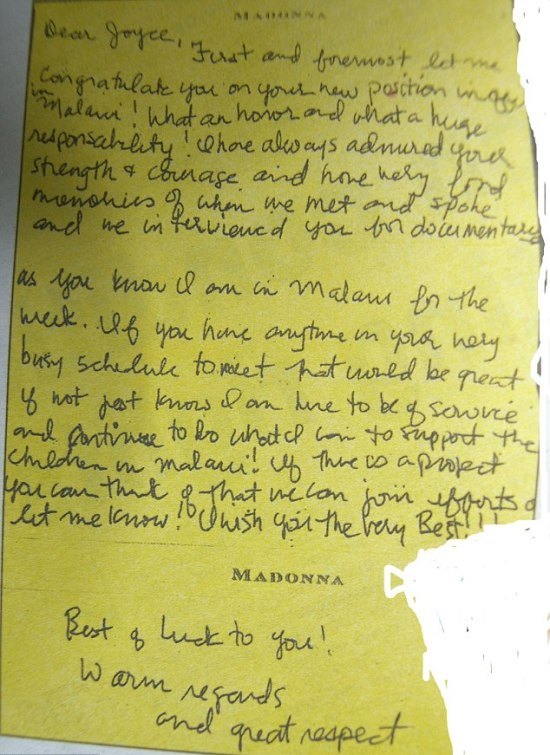 MADONNA
Dear Joyce,
First and foremost let me
Congratulate you on your new position
in Malawi! What an honor and what a huge
responsability! I have always admired your
strength & courage and have very fond
memories of when we met and spoke
and we interviewed you for documentary
as you know I am in Malawi for the
week. If you have anytime in your very
busy schedule to meet that would be great
if not just know I am here to be of service
and continue to do what I can to support the
Children in Malawi! If there is a project
you can think of that we can join efforts
let me know! I wish you the very Best!!!
MADONNA
Best of luck to you!
Warm regards
and great respect